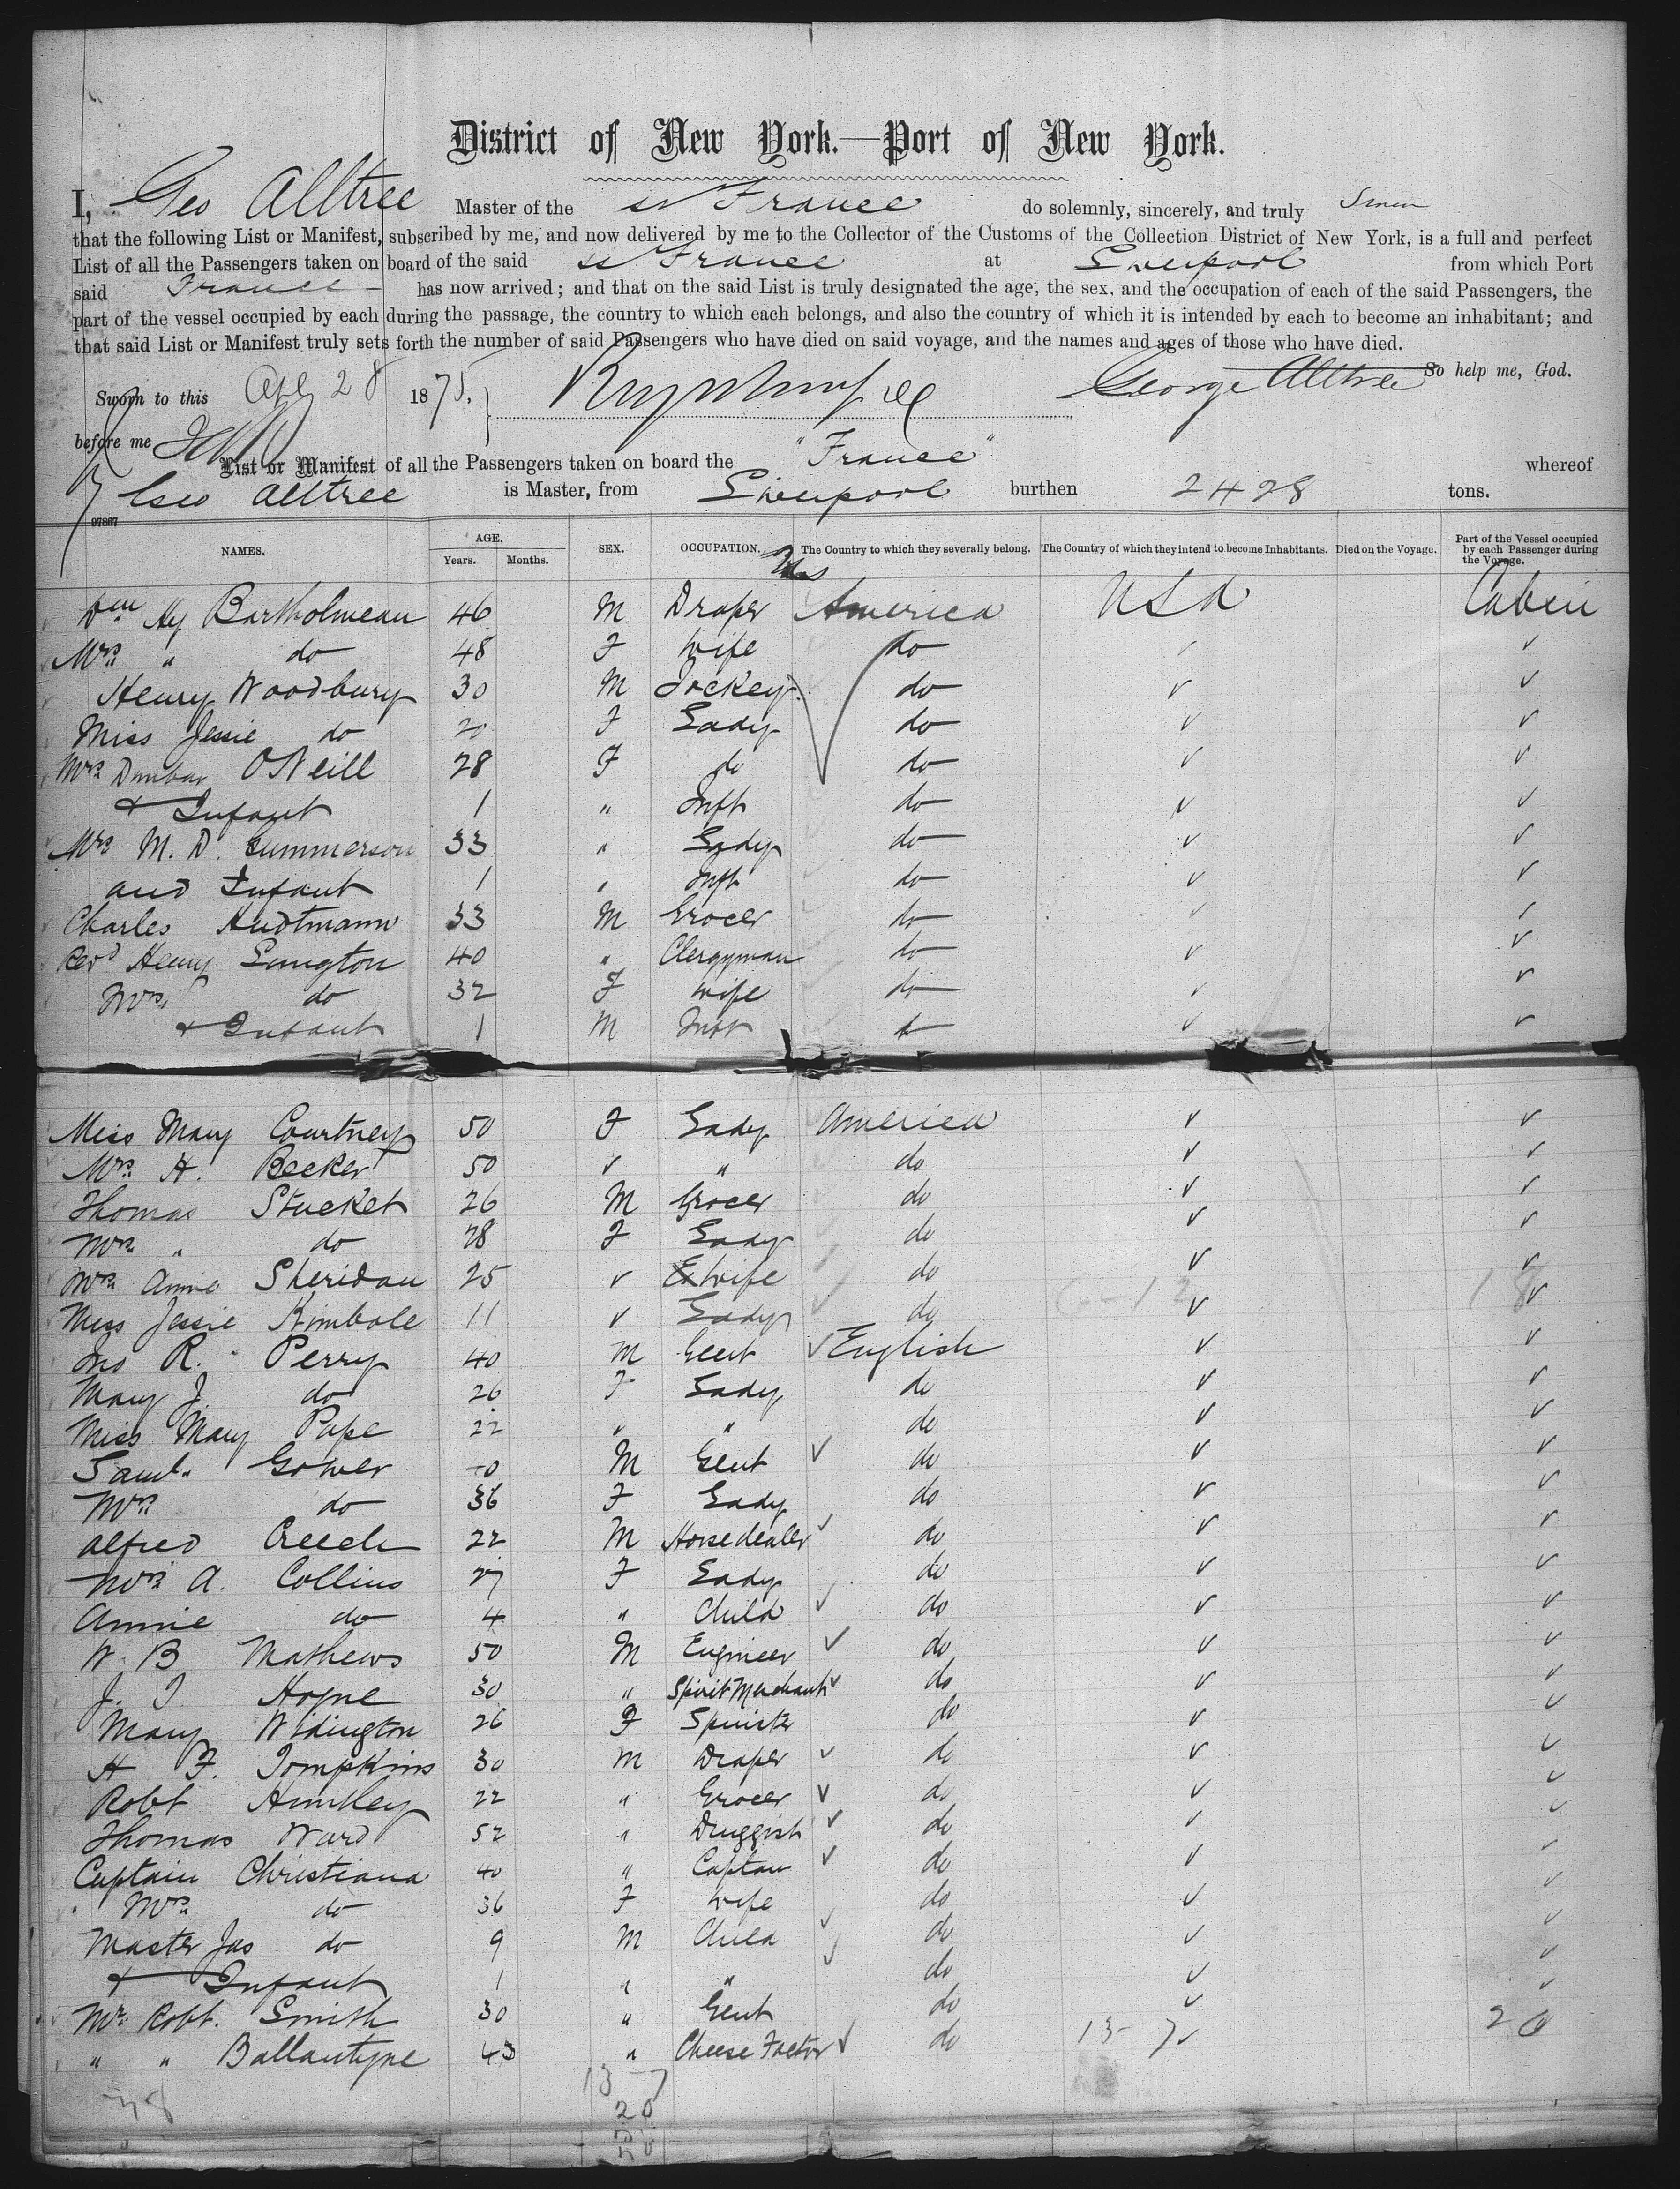 District of New York.—Port of New York.
I, Geo Alltree Master of the ss France do solemnly, sincerely, and truly Swear
that the following List or Manifest, subscribed by me, and now delivered by me to the Collector of the Customs of the Collection District of New York, is a full and perfect
List of all the Passengers taken on board of the said ss France at Liverpool from which Port
said France has now arrived; and that on the said List is truly designated the age, the sex, and the occupation of each of the said Passengers, the
part of the vessel occupied by each during the passage, the country to which each belongs, and also the country of which it is intended by each to become an inhabitant; and
that said List or Manifest truly sets forth the number of said Passengers who have died on said voyage, and the names and ages of those who have died.
So help me, God.
Sworn to this Apl 28 1875. George Alltree
before me
List or Manifest of all the Passengers taken on board the "France" whereof
Geo Alltree is Master, from Liverpool burthen 2428 tons.
97867
NAMES. AGE. Years. Months. SEX. OCCUPATION. The Country to which they severally belong. The Country of which they intend to become Inhabitants. Died on the Voyage. Part of the Vessel occupied by each Passenger during the Voyage.
Hy Bartholmeau 46 M Draper America USA Cabin
Mrs " do 48 F Wife do
Henry Woodbury 30 M Jockey do
Miss Jessie do 20 F Lady do
Mrs Dunbar O'Neill 28 F do do
+ Infant 1 " Inft do
Mrs M. D. Summerson 33 " Lady do
and Infant 1 " Inft do
Charles Hudtmann 33 M Grocer do
Revd Henry Lungton 40 " Clergyman do
Mrs do 32 F Wife do
+ Infant 1 M Inft do
Miss Mary Courtney 50 F Lady America
Mrs H. Becker 50 " do
Thomas Stucket 26 M Grocer do
Mrs " do 28 F Lady do
Mrs Annie Sheridan 25 Wife do
Miss Jessie Kimbole 11 Lady do
Jno R. Perry 40 M Gent English
Mary J. do 26 F Lady do
Miss Mary Pope 22 " " do
Saml. Gower M Gent do
Mrs do 36 F Lady do
Alfred Creech 22 M Horse dealer do
Mrs A. Collins 27 F Lady do
Annie do 4 " Child do
W. B Mathews 50 M Engineer do
J. T. Hogne 30 " Spirit Merchant do
Mary Widington 26 F Spinster do
H F. Tompkins 30 M Draper do
Robt Huntley 22 " Grocer do
Thomas Ward 52 " Druggist do
Captain Christiana 40 " Captain do
Mrs do 36 F Wife do
Master Jas do 9 M Child do
+ Infant 1 " " do
Mr Robt. Smith 30 " Gent do
" " Ballantyne 43 " Cheese Factor do 13-7 20
13-7
20